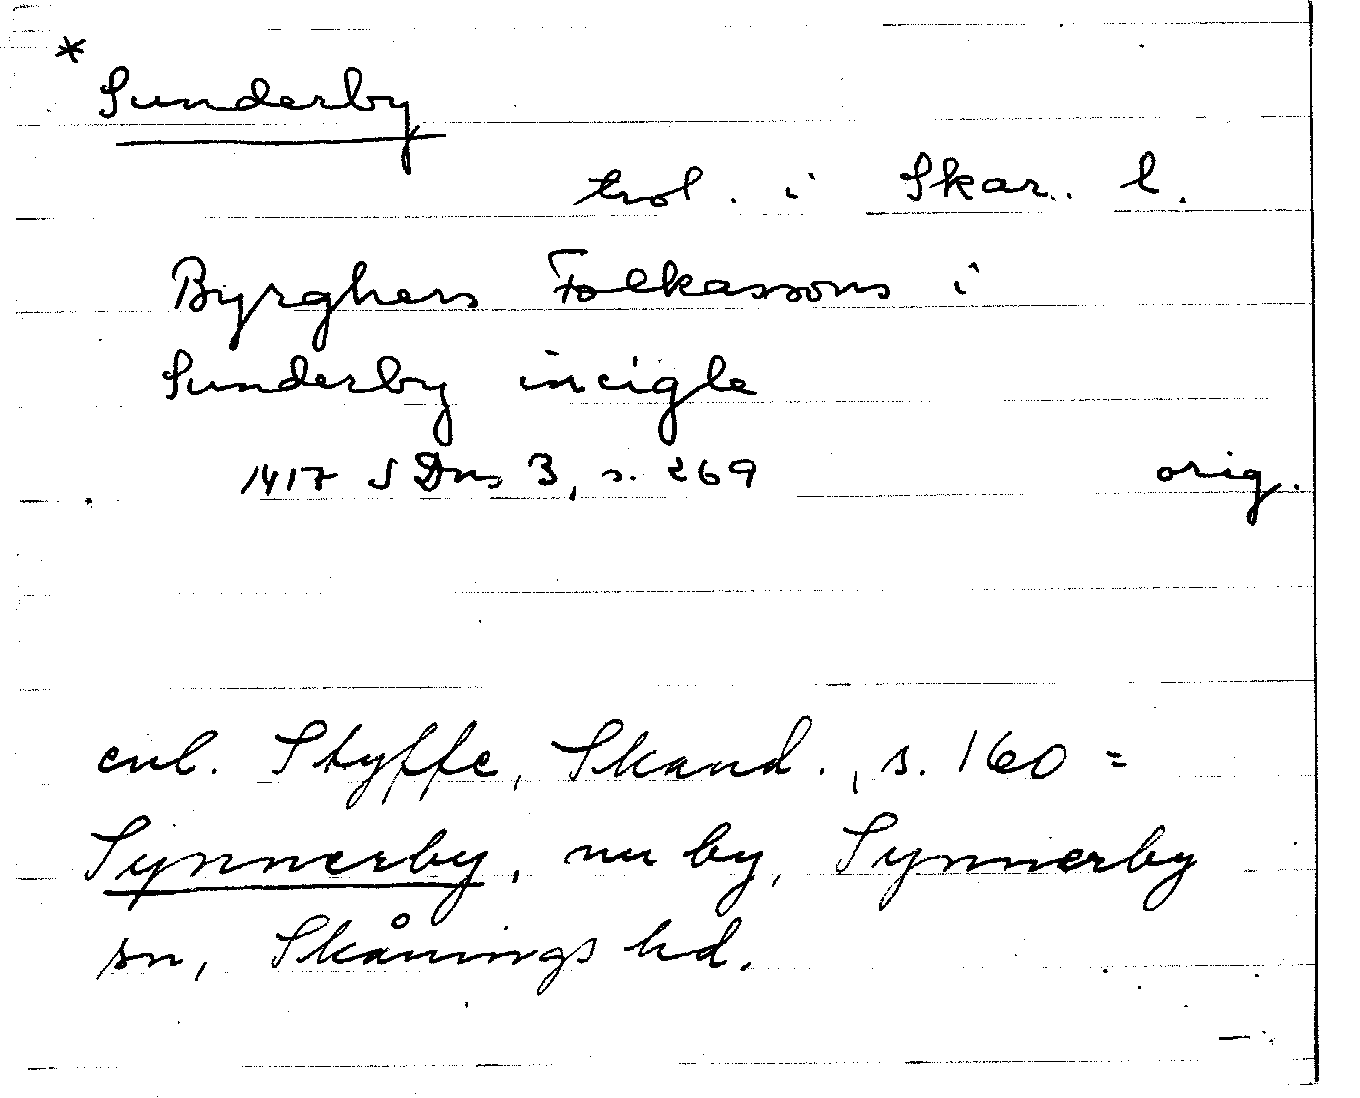 *
Sunderby
trol. i Skar. l.
Byrghers Folkassons i
Sunderby incigle
1417 SDns 3, s. 269 orig.
enl. Styffe, Skand., s. 160 =
Synnerby, nu by, Synnerby
sn, Skånings hd.